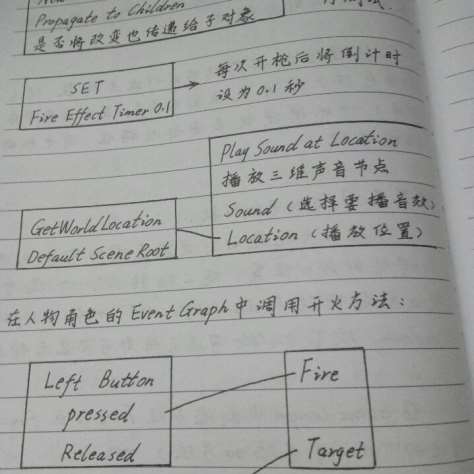 Propagate to Children
是否将改变也传递给子对象
SET
Fire Effect Timer 0.1
每次开枪后将倒计时
设为0.1秒
Play Sound at Location
播放三维声音节点
Sound (选择要播音效)
Location (播放位置)
GetWorldLocation
Default Scene Root
在人物角色的Event Graph中调用开火方法:
Left Button
pressed
Released
Fire
Target